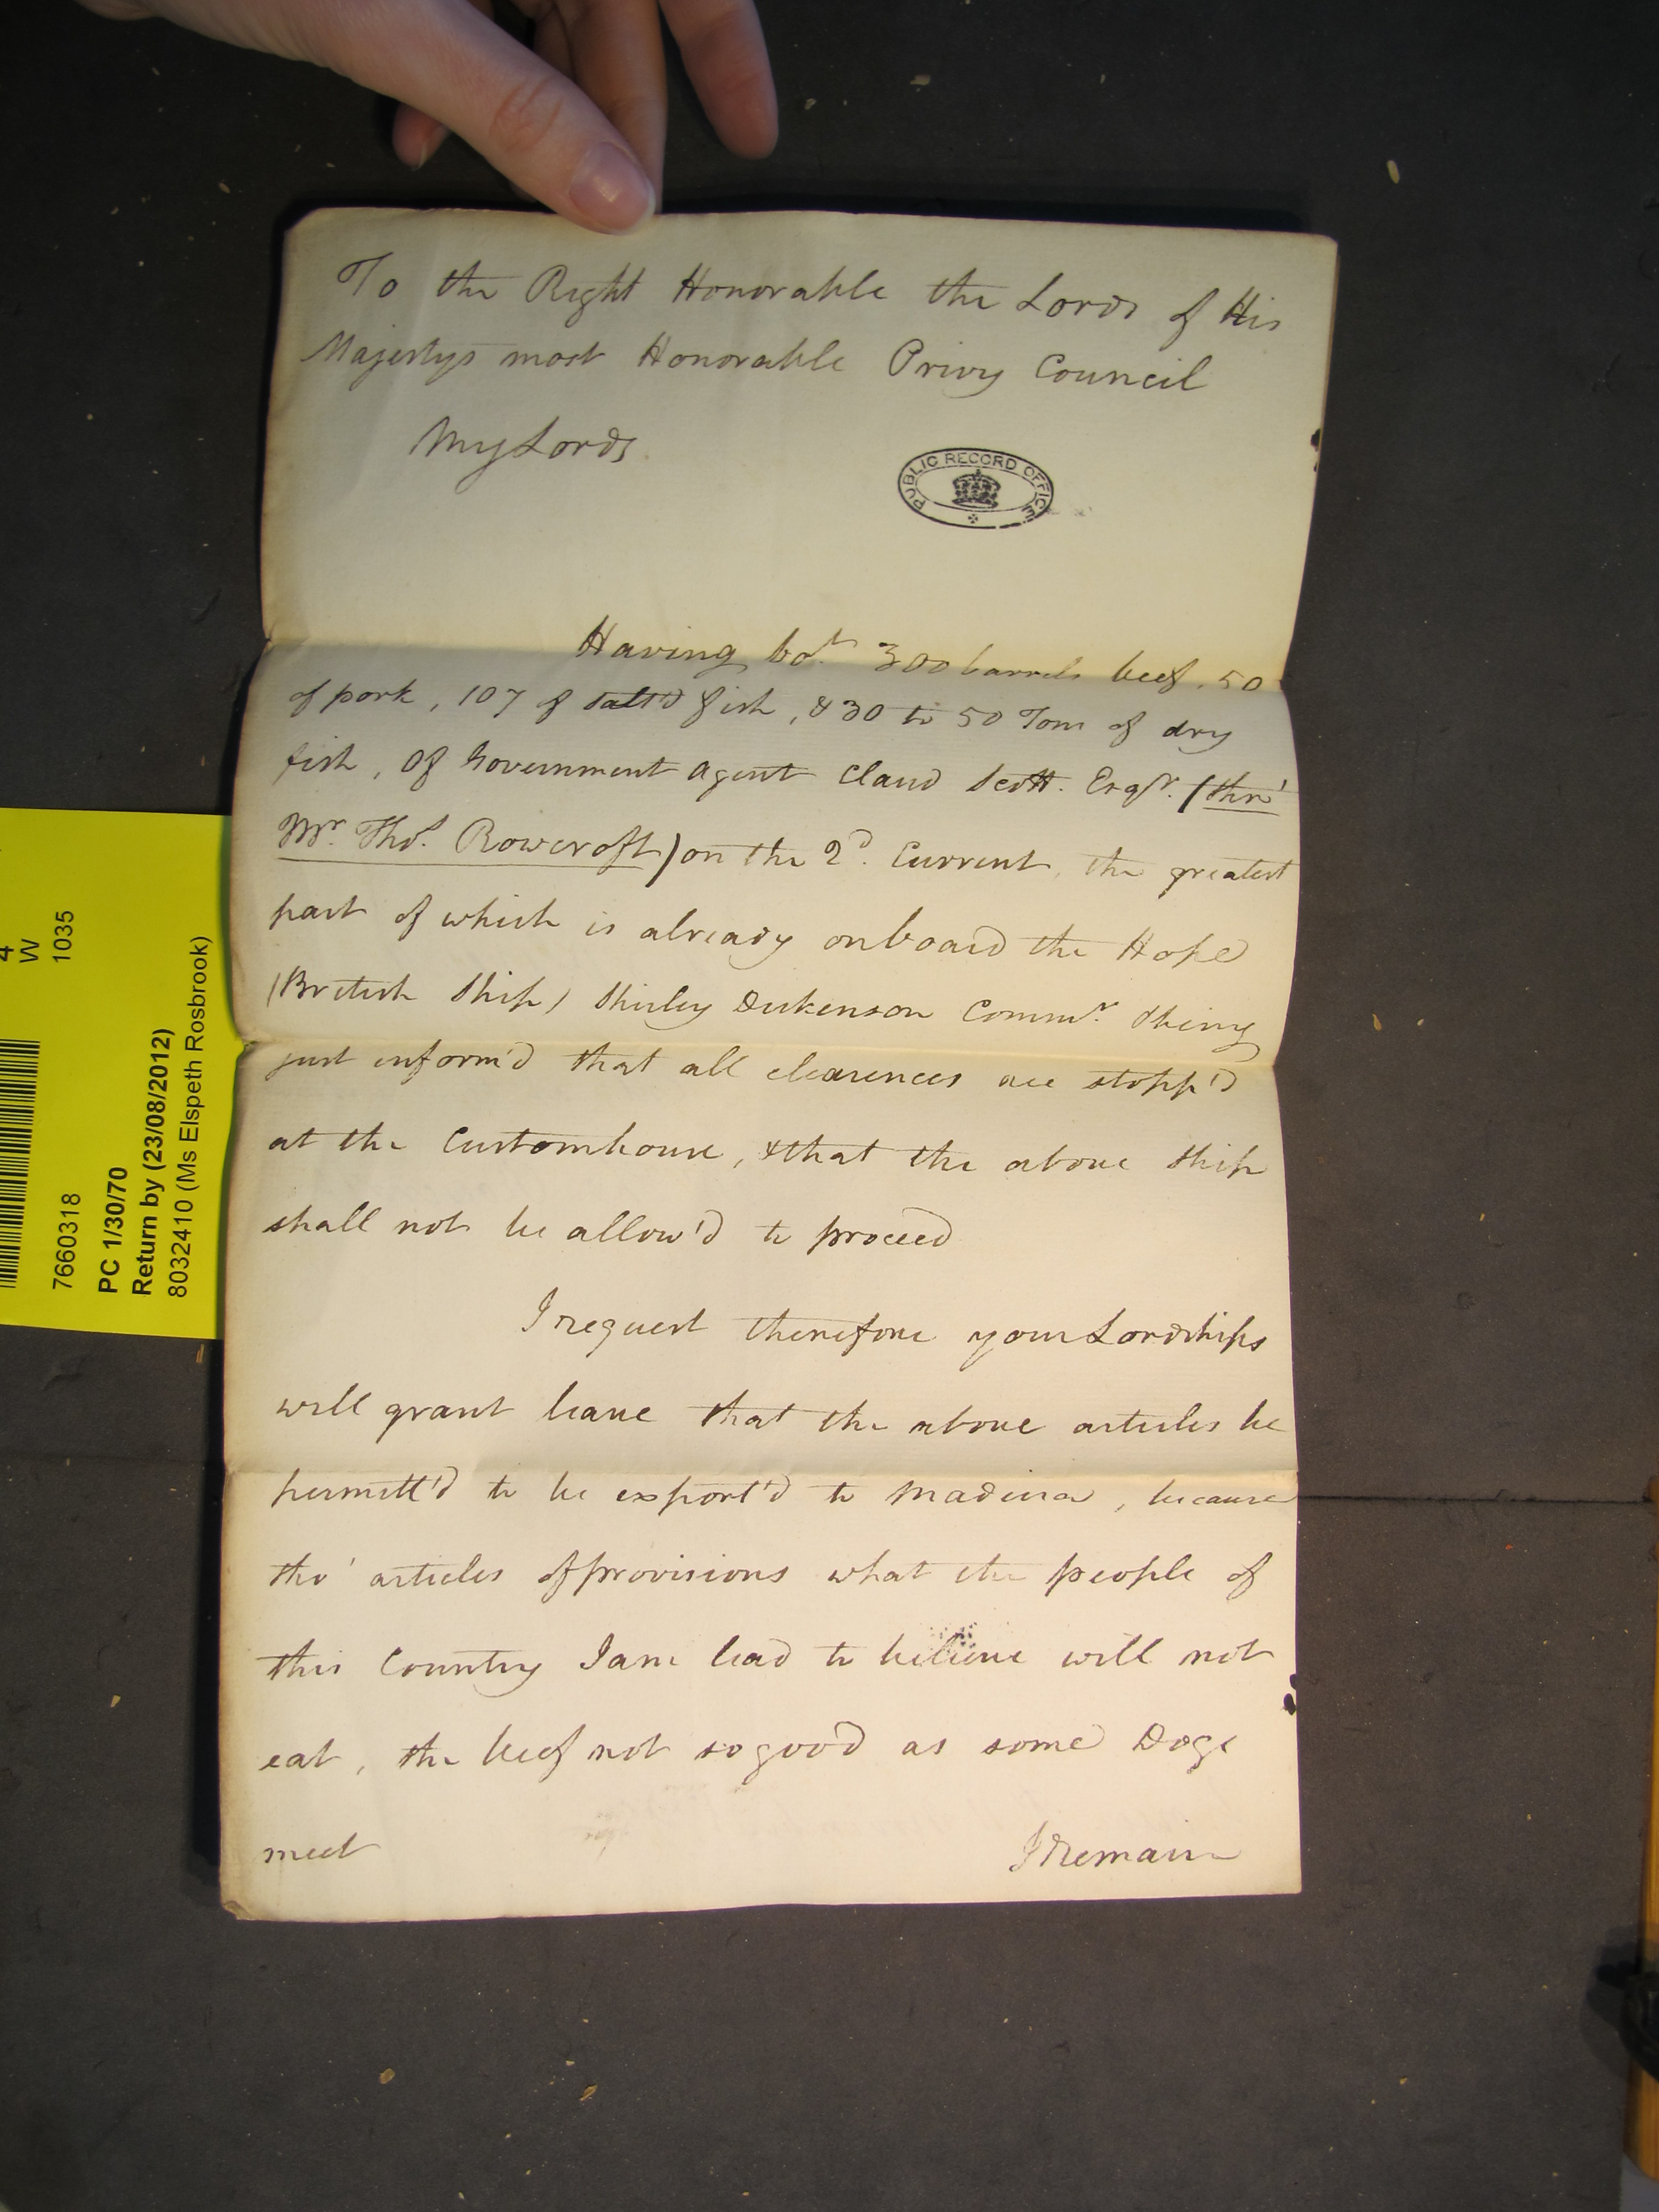 To the Right Honorable the Lords of His
Majestys most Honorable Privy Council
My Lords
PUBLIC RECORD OFFICE
Having bot. 300 barrels beef, 50
of pork, 107 of salt'd fish, & 30 to 50 Tons of dry
fish, Of Government agent Claud Scott. Esqr. (thro'
Mr. Thos. Rowcroft) on the 2d. Current, the greatest
part of which is already onboard the Hope
(British Ship) Shirley Dickenson Commr. & being
just inform'd that all clearences are stopp'd
at the Customhouse, & that the above Ship
shall not be allow'd to proceed
I request therefore your Lordships
will grant leave that the above articles be
permitt'd to be export'd to Madeira, because
tho' articles of provisions what the people of
this Country I am lead to believe will not
eat, the beef not so good as some Dogs
meet
I Remain
4
W
1035
7660318
PC 1/30/70
Return by (23/08/2012)
8032410 (Ms Elspeth Rosbrook)